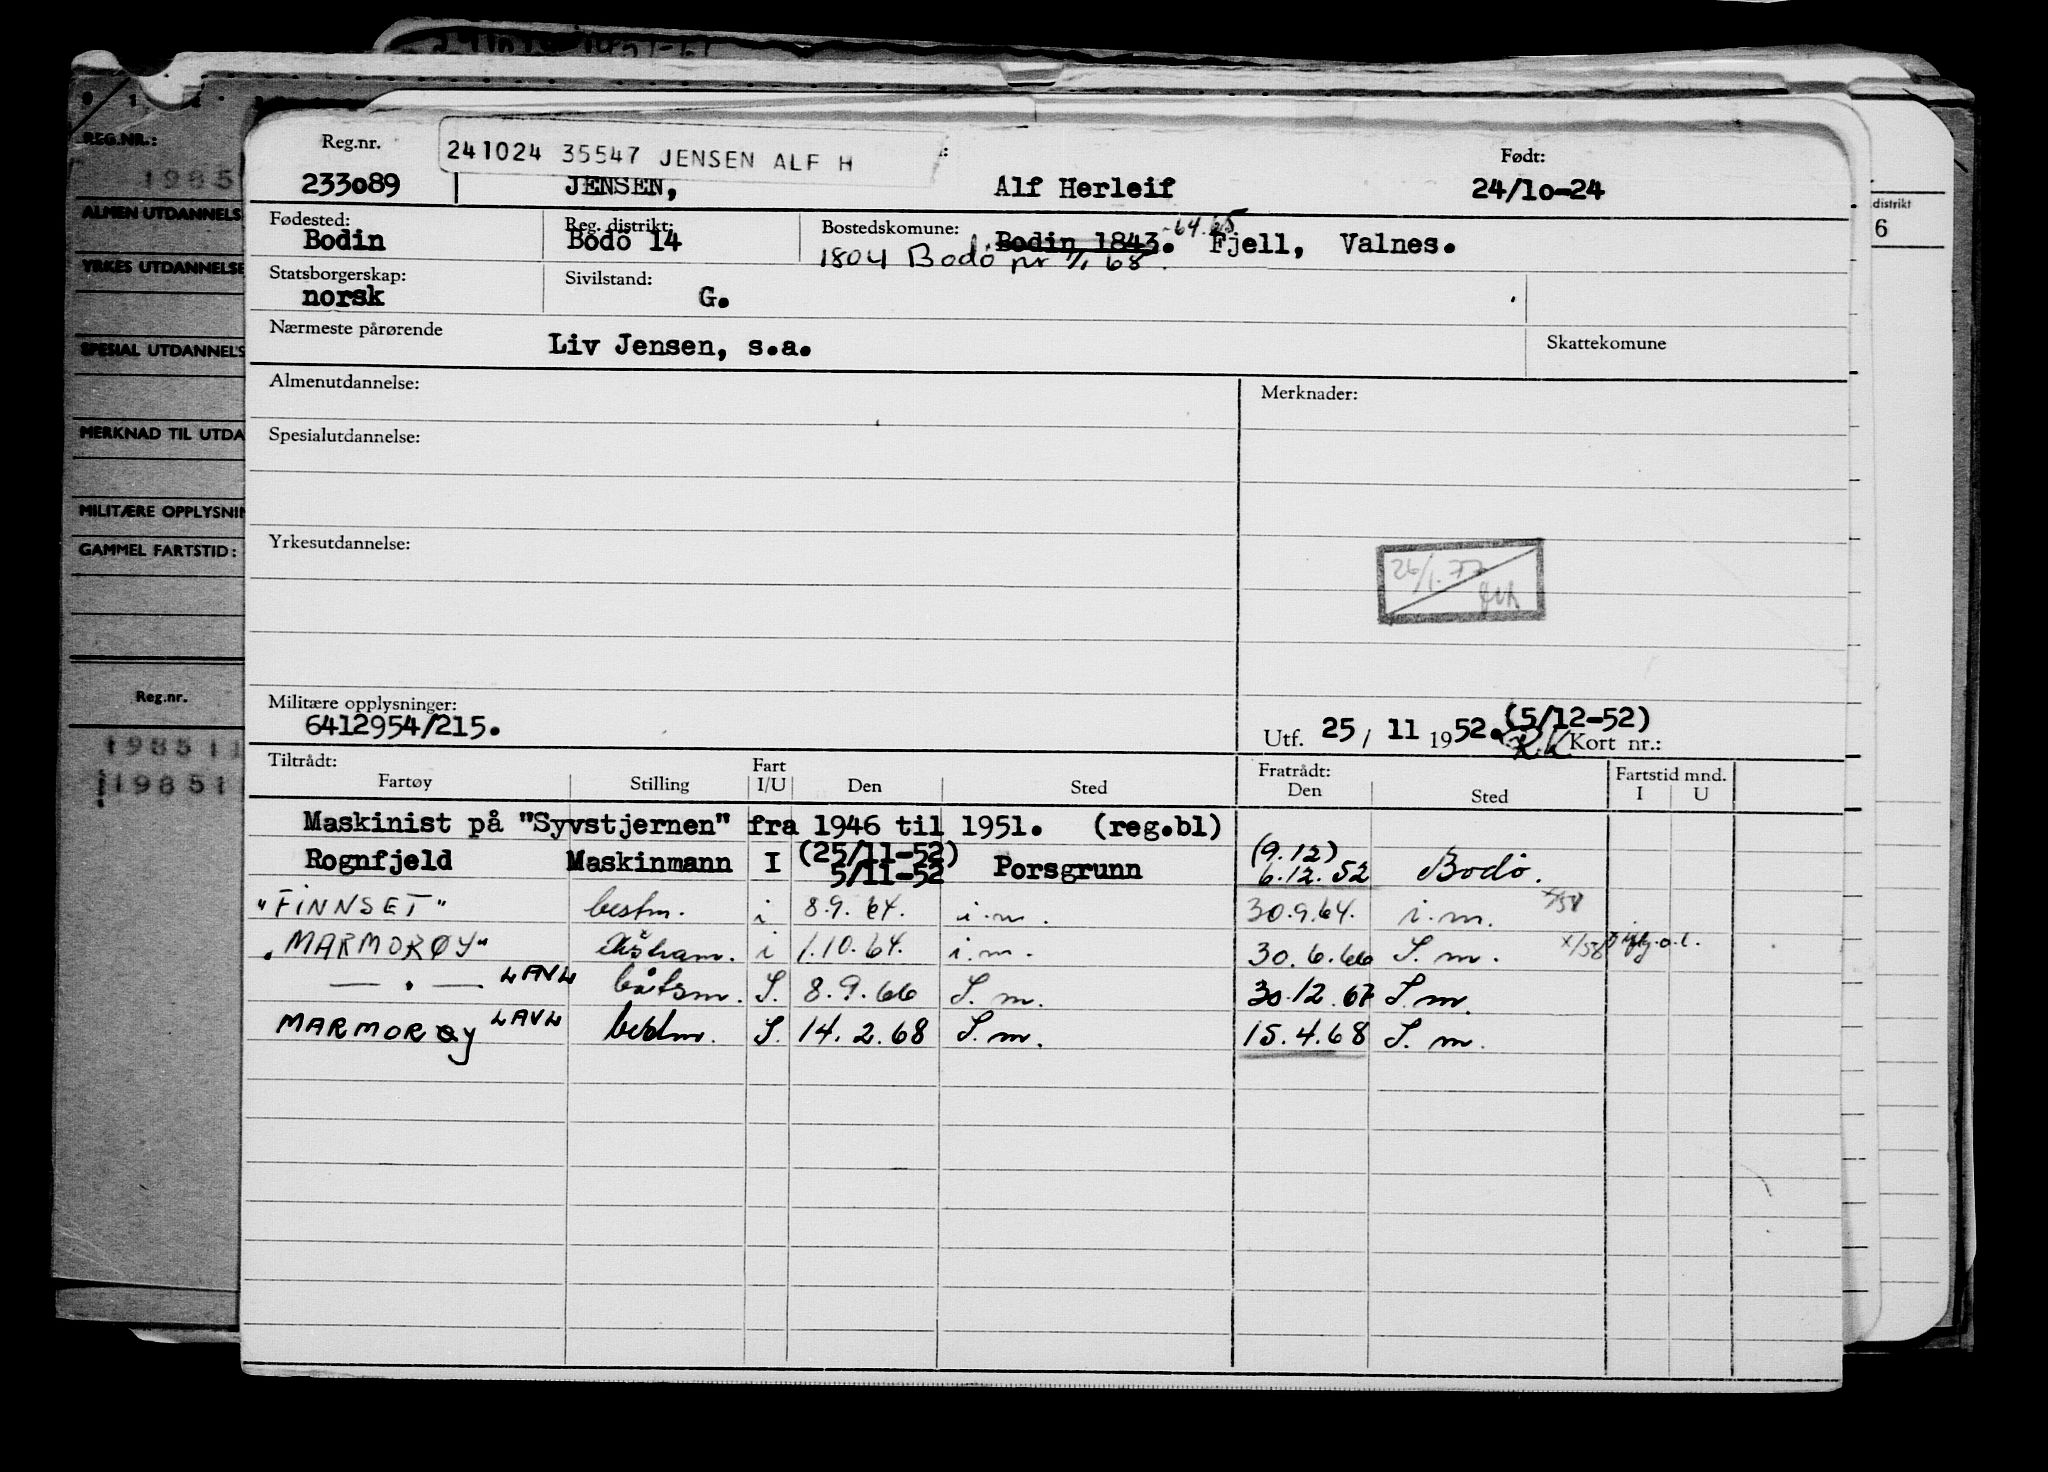 REG.NR.:
1985
ALMEN UTDANNELS
YRKES UTDANNELSE
SPESIAL UTDANNELS
MERKNAD TIL UTDA
MILITÆRE OPPLYSNIN
GAMMEL FARTSTID:
Reg.nr.
198511
198511
distrikt
6
241024 35547 JENSEN ALF H
Reg.nr. Født:
233o89 JENSEN, Alf Herleif 24/1o-24
Fødested: Reg. distrikt: Bostedskomune: -64.65
Bodin Bodö 14 Bodin 1843. Fjell, Valnes.
1804 Bodö pr 1/1 68.
Statsborgerskap: Sivilstand:
norsk G.
Nærmeste pårørende Liv Jensen, s.a. Skattekomune
Almenutdannelse: Merknader:
Spesialutdannelse:
Yrkesutdannelse:
26/1.77
Militære opplysninger:
6412954/215.
Utf. 25/ 11 1952. (5/12-52) Kort nr.:
Tiltrådt: Fart Fratrådt: Fartstid mnd.
Fartøy Stilling I/U Den Sted Den Sted I U
Maskinist på "Syvstjernen" fra 1946 til 1951. (reg.bl)
Rognfjeld Maskinmann I (25/11-52) 5/11-52 Porsgrunn (9.12) 6.12.52 Bodö.
"FINNSET" bestm. i 8.9.64. i.m. 30.9.64. i.m.
"MARMORØY" i 1.10.64. i.m. 30.6.66 S.m.
— " — LAVL båtsm. S. 8.9.66 S.m. 30.12.67 S.m.
MARMORøy LAVL bestm. S. 14.2.68 S.m. 15.4.68 S.m.